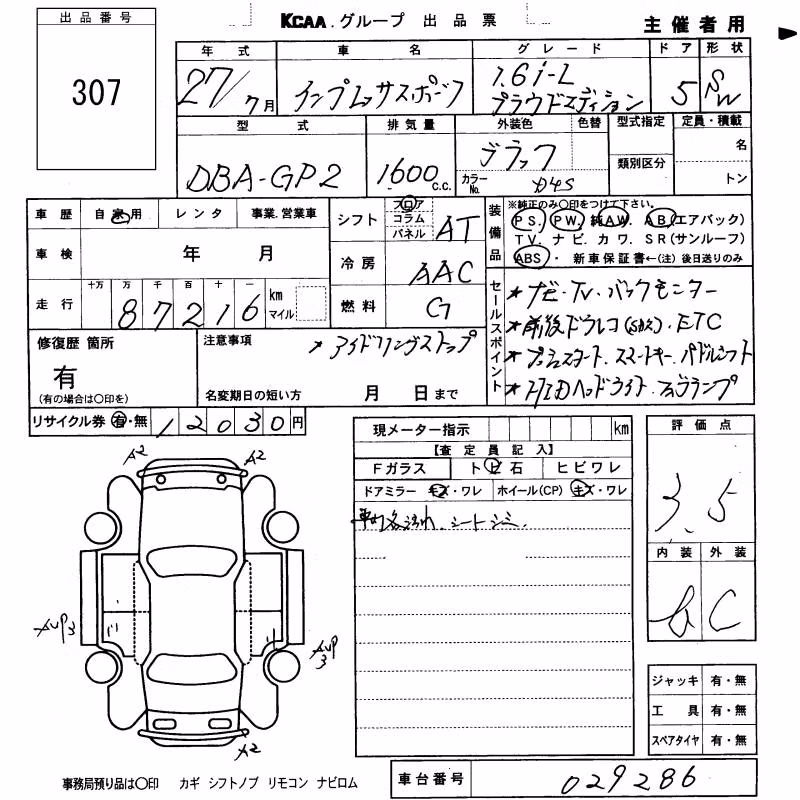 出品番号
307
KCAA.グループ 出品票
主催者用
年式 車名 グレード ドア 形状
27/7月 インプレッサスポーツ 1.6i-L
プラウドエディション 5 SW
型式 排気量 外装色 色替 型式指定 定員・積載
DBA-GP2 1600c.c. ブラック
カラーNo. D4S
類別区分
名
トン
車歴 自家用 レンタ 事業.営業車
車検 年 月
走行 十万 万 千 百 十 一
87216 km マイル
シフト フロア コラム パネル AT
冷房 AAC
燃料 G
装備品
※純正のみ〇印をつけて下さい。
PS. PW. 純AW. AB(エアバック)
TV. ナビ. カワ. SR(サンルーフ)
ABS・ 新車保証書←(注)後日送りのみ
セールスポイント
★ナビ・TV・バックモニター
★前後ドラレコ(社外)・ETC
★プッシュスタート.スマートキー.パドルシフト
★HIDヘッドライト.フォグランプ
修復歴 箇所
有
(有の場合は〇印を)
注意事項
★アイドリングストップ
名変期日の短い方 月 日まで
リサイクル券 有・無 12030円
現メーター指示 km
【査定員記入】
Fガラス トビ石 ヒビワレ
ドアミラー キズ・ワレ ホイール(CP) キズ・ワレ
シートシミ.
評価点
3.5
内装 外装
C
A2 A2
AUP3
AUP3
X2
ジャッキ 有・無
工具 有・無
スペアタイヤ 有・無
事務局預り品は〇印 カギ シフトノブ リモコン ナビロム
車台番号 029286